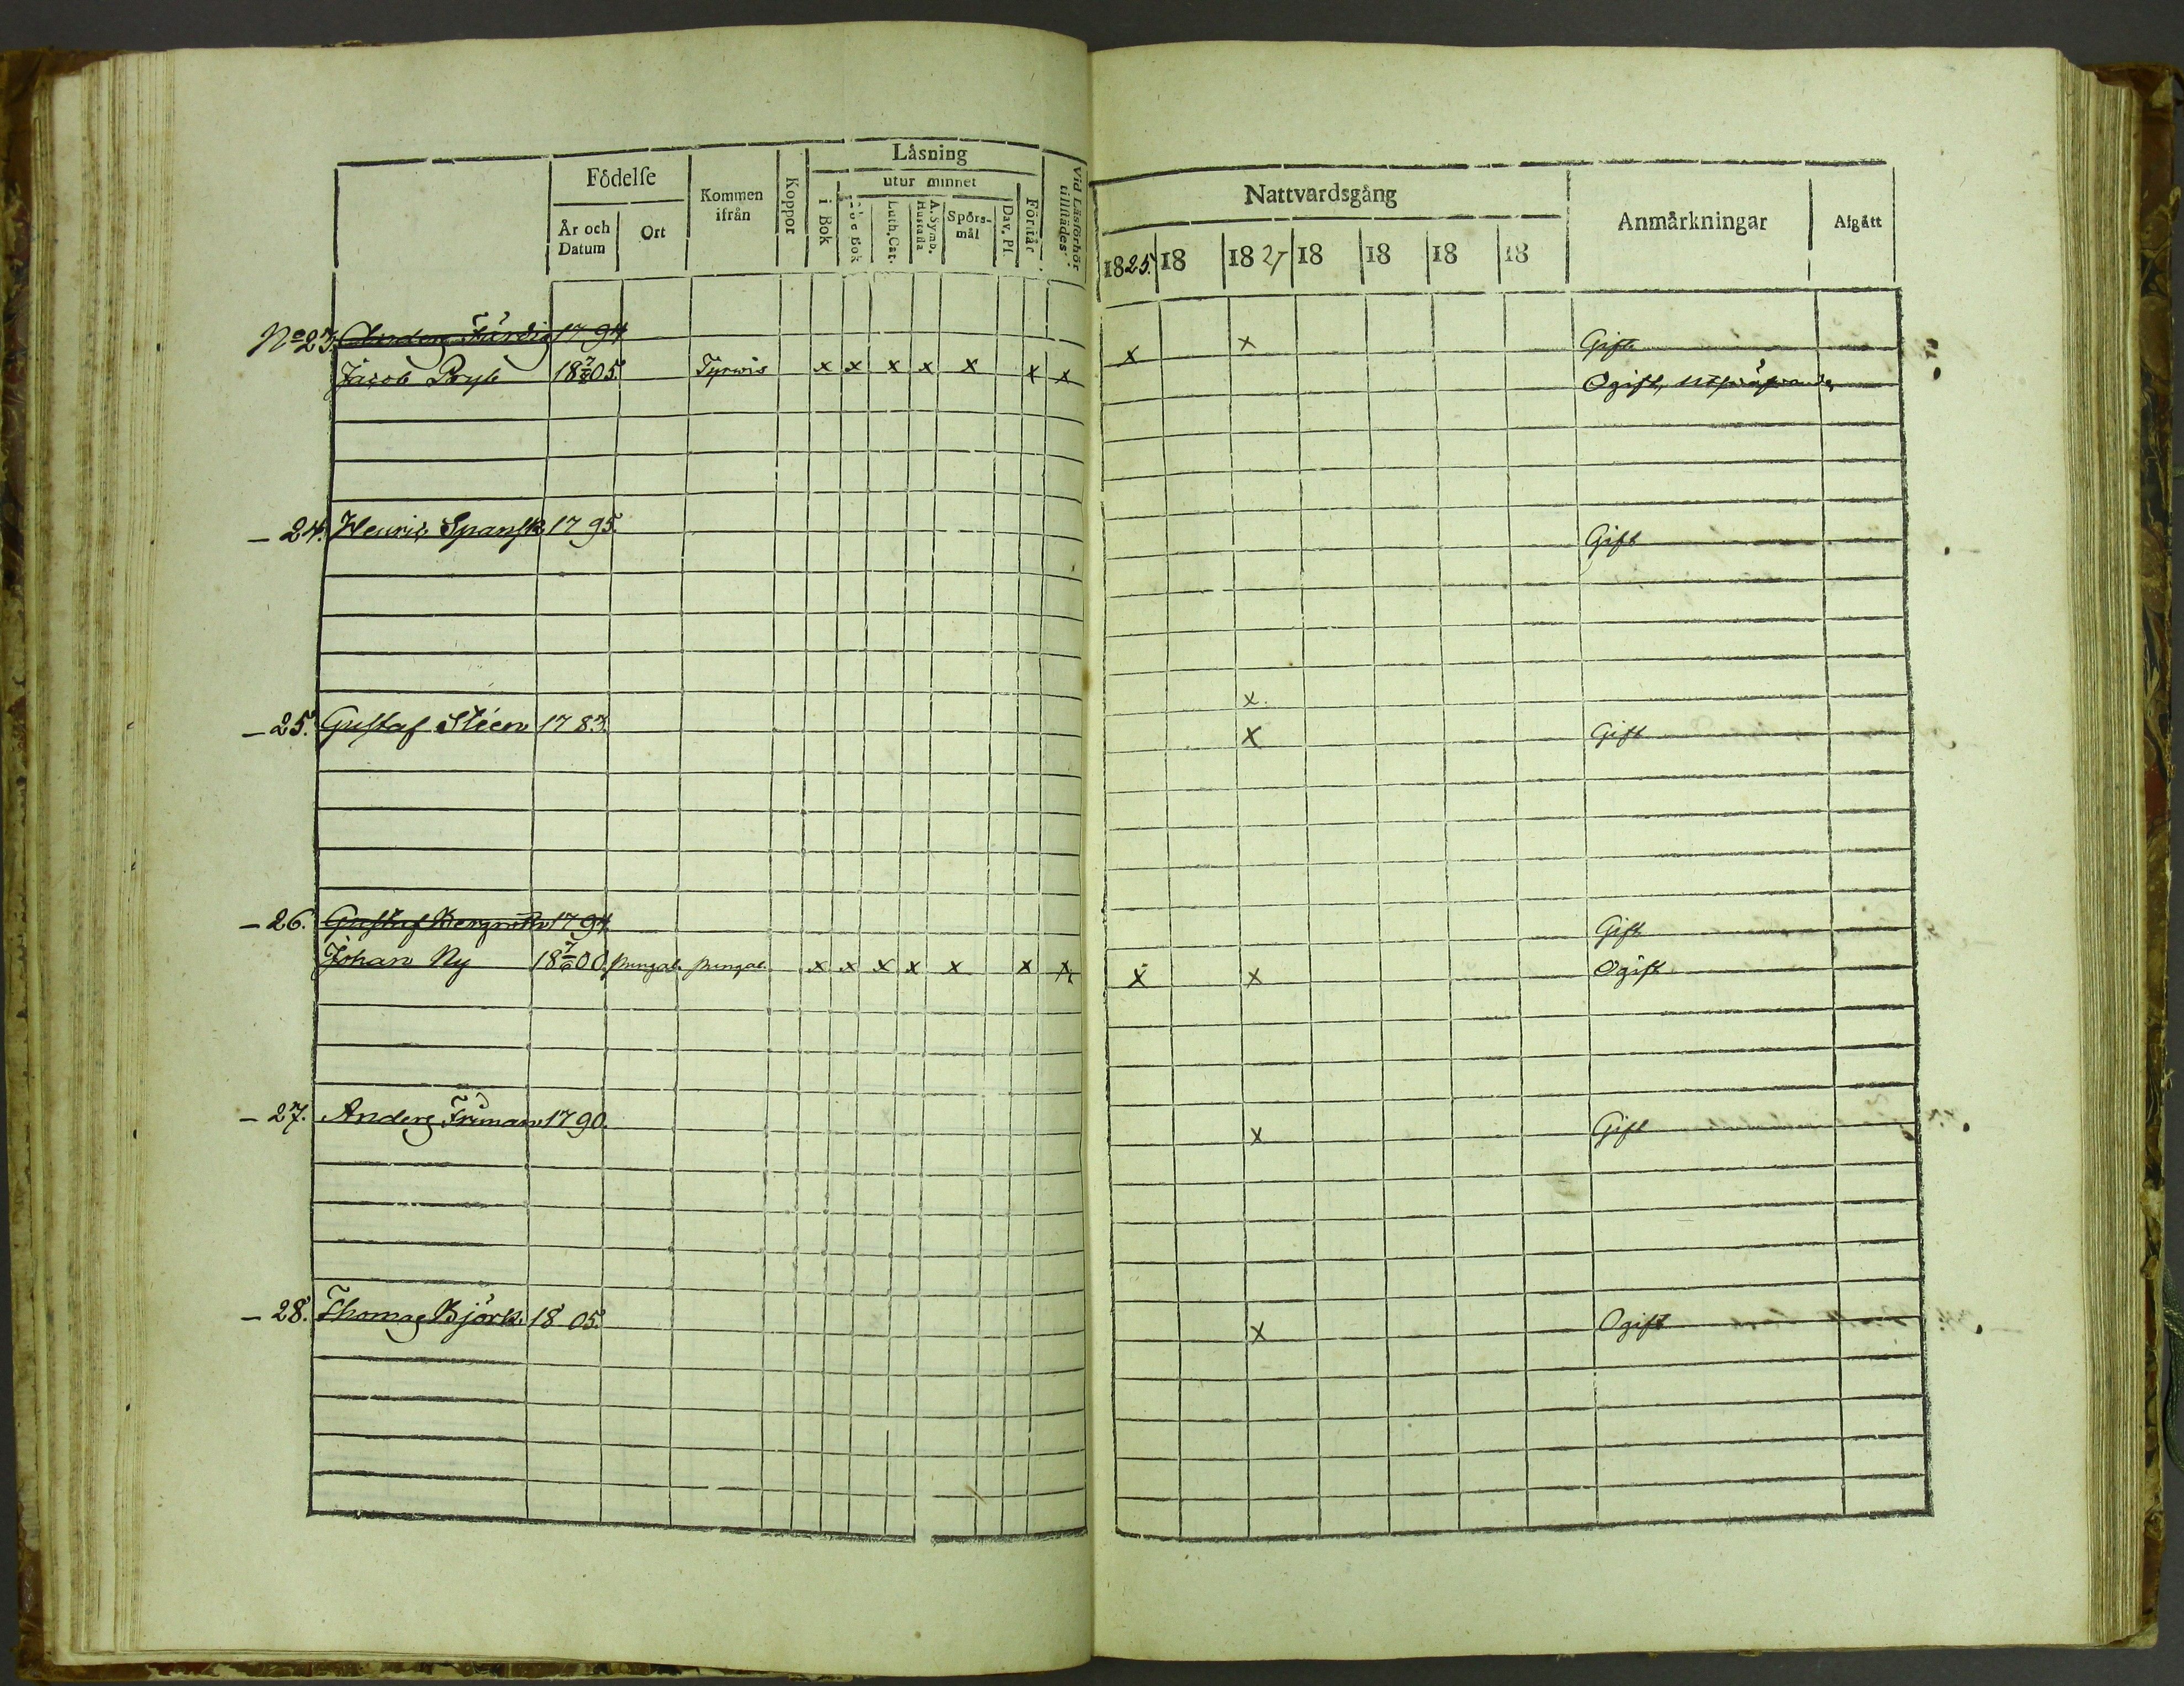 Födelse
Läsning
Kommen ifrån
Koppor
utur minnet
Vid Läsförhör tillstädes
År och Datum
Ort
i Bok
a b c Bok
Luth. Cat.
A. Symb. Hustafla
Spörsmål
Dav. Ps.
Förstår
Nattvardsgång
Anmärkningar
Afgått
1825. 18 1827 18 18 18 18
No 23. Anders Färdig 1794 x Gift
Jacob Ryb 18 7/05. Tyrvis x x x x x x x x Ogift,
– 24. Henric Spansk 1795. Gift
x.
– 25. Gustaf Steen 1783. x Gift
– 26. Gustaf 1794 Gift
Johan Ny 18 7/6 00. Pungal. Pungal. x x x x x x x x x Ogift
– 27. Anders Friman 1790. x Gift
– 28. Thomas Björk 1805. x Ogift